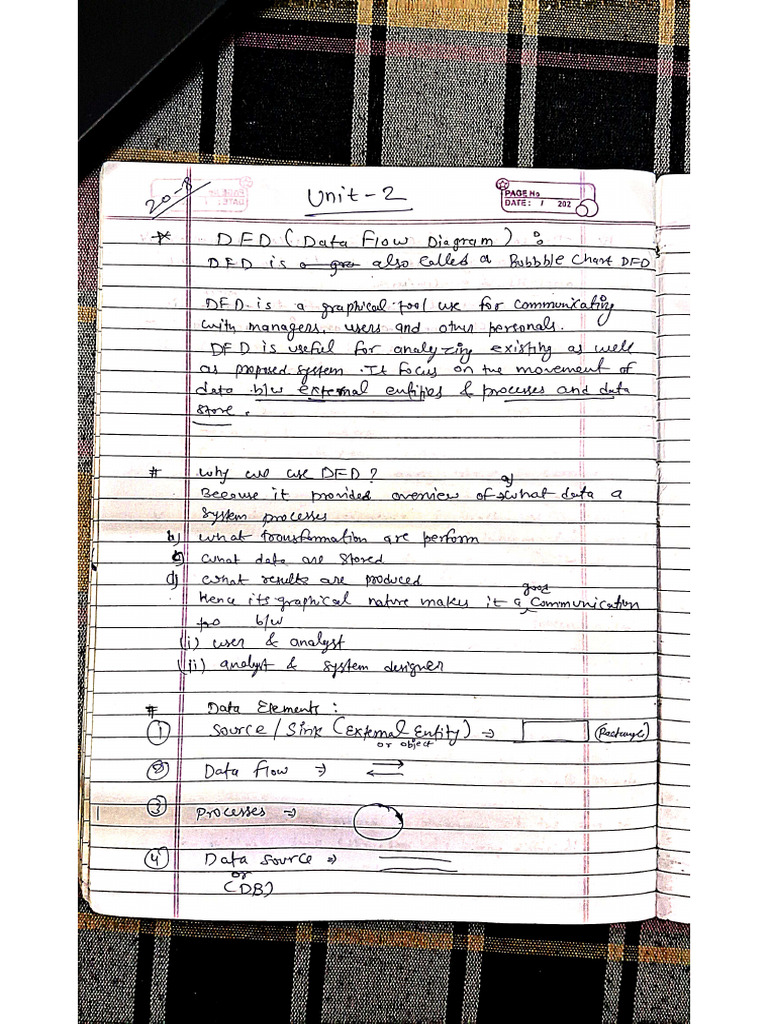 20-8
Unit-2
PAGE No
DATE: / 202
* DFD (Data Flow Diagram) :
DFD is also called a Bubbble Chart DFD
DFD is a graphical tool use for communicating
with managers, users and other personals.
DFD is useful for analyzing existing as well
as proposed system. It focus on the movement of
data b/w external entities & processes and data
store.
# Why we use DFD?
Because it provided overview of a) what data a
system processes
b) what transformation are perform
c) what data are stored
d) what results are produced
Hence its graphical nature makes it a good communication
too b/w
(i) user & analyst
(ii) analyst & system designer
# Data Elements :
1 Source / Sink (External Entity) → (Rectangle)
or object
2 Data flow →
3 Processes →
4 Data source →
or
(DB)